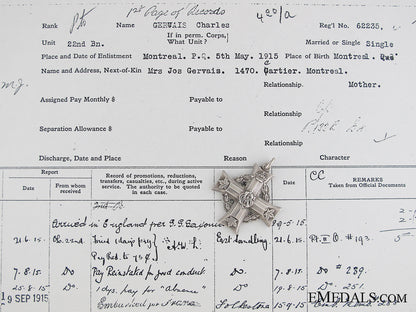 1st Page of Records
420/a
Rank Pte Name GERVAIS Charles Reg'l No. 62235.
If in perm. Corps, What Unit?
Unit 22nd Bn. Married or Single Single
Place and Date of Enlistment Montreal. P.Q. 5th May. 1915 Place of Birth Montreal. Que
Name and Address, Next-of-Kin Mrs Jos Gervais. 1470. Cartier. Montreal.
Relationship Mother.
Assigned Pay Monthly $ Payable to
Relationship
Separation Allowance $ Payable to
Relationship
Discharge, Date and Place Reason Character
Report
Date From whom received
Record of promotions, reductions, transfers, casualties, etc., during active service. The authority to be quoted in each case.
Place Date
CC REMARKS Taken from Official Documents
Arrived in England per S.S. 29-5-15
21.6.15 Ob. 22nd East Sandling 21.6.15 Pt II O #193
7.8.15 Do Pay Reinstated for good conduct Do 7.8.15 Do 239.
25.8.15 Do. 1 days pay for "absence" Do 251.
19 SEP 1915 Embarked for France Folkestone 15.9.15
EMEDALS.COM